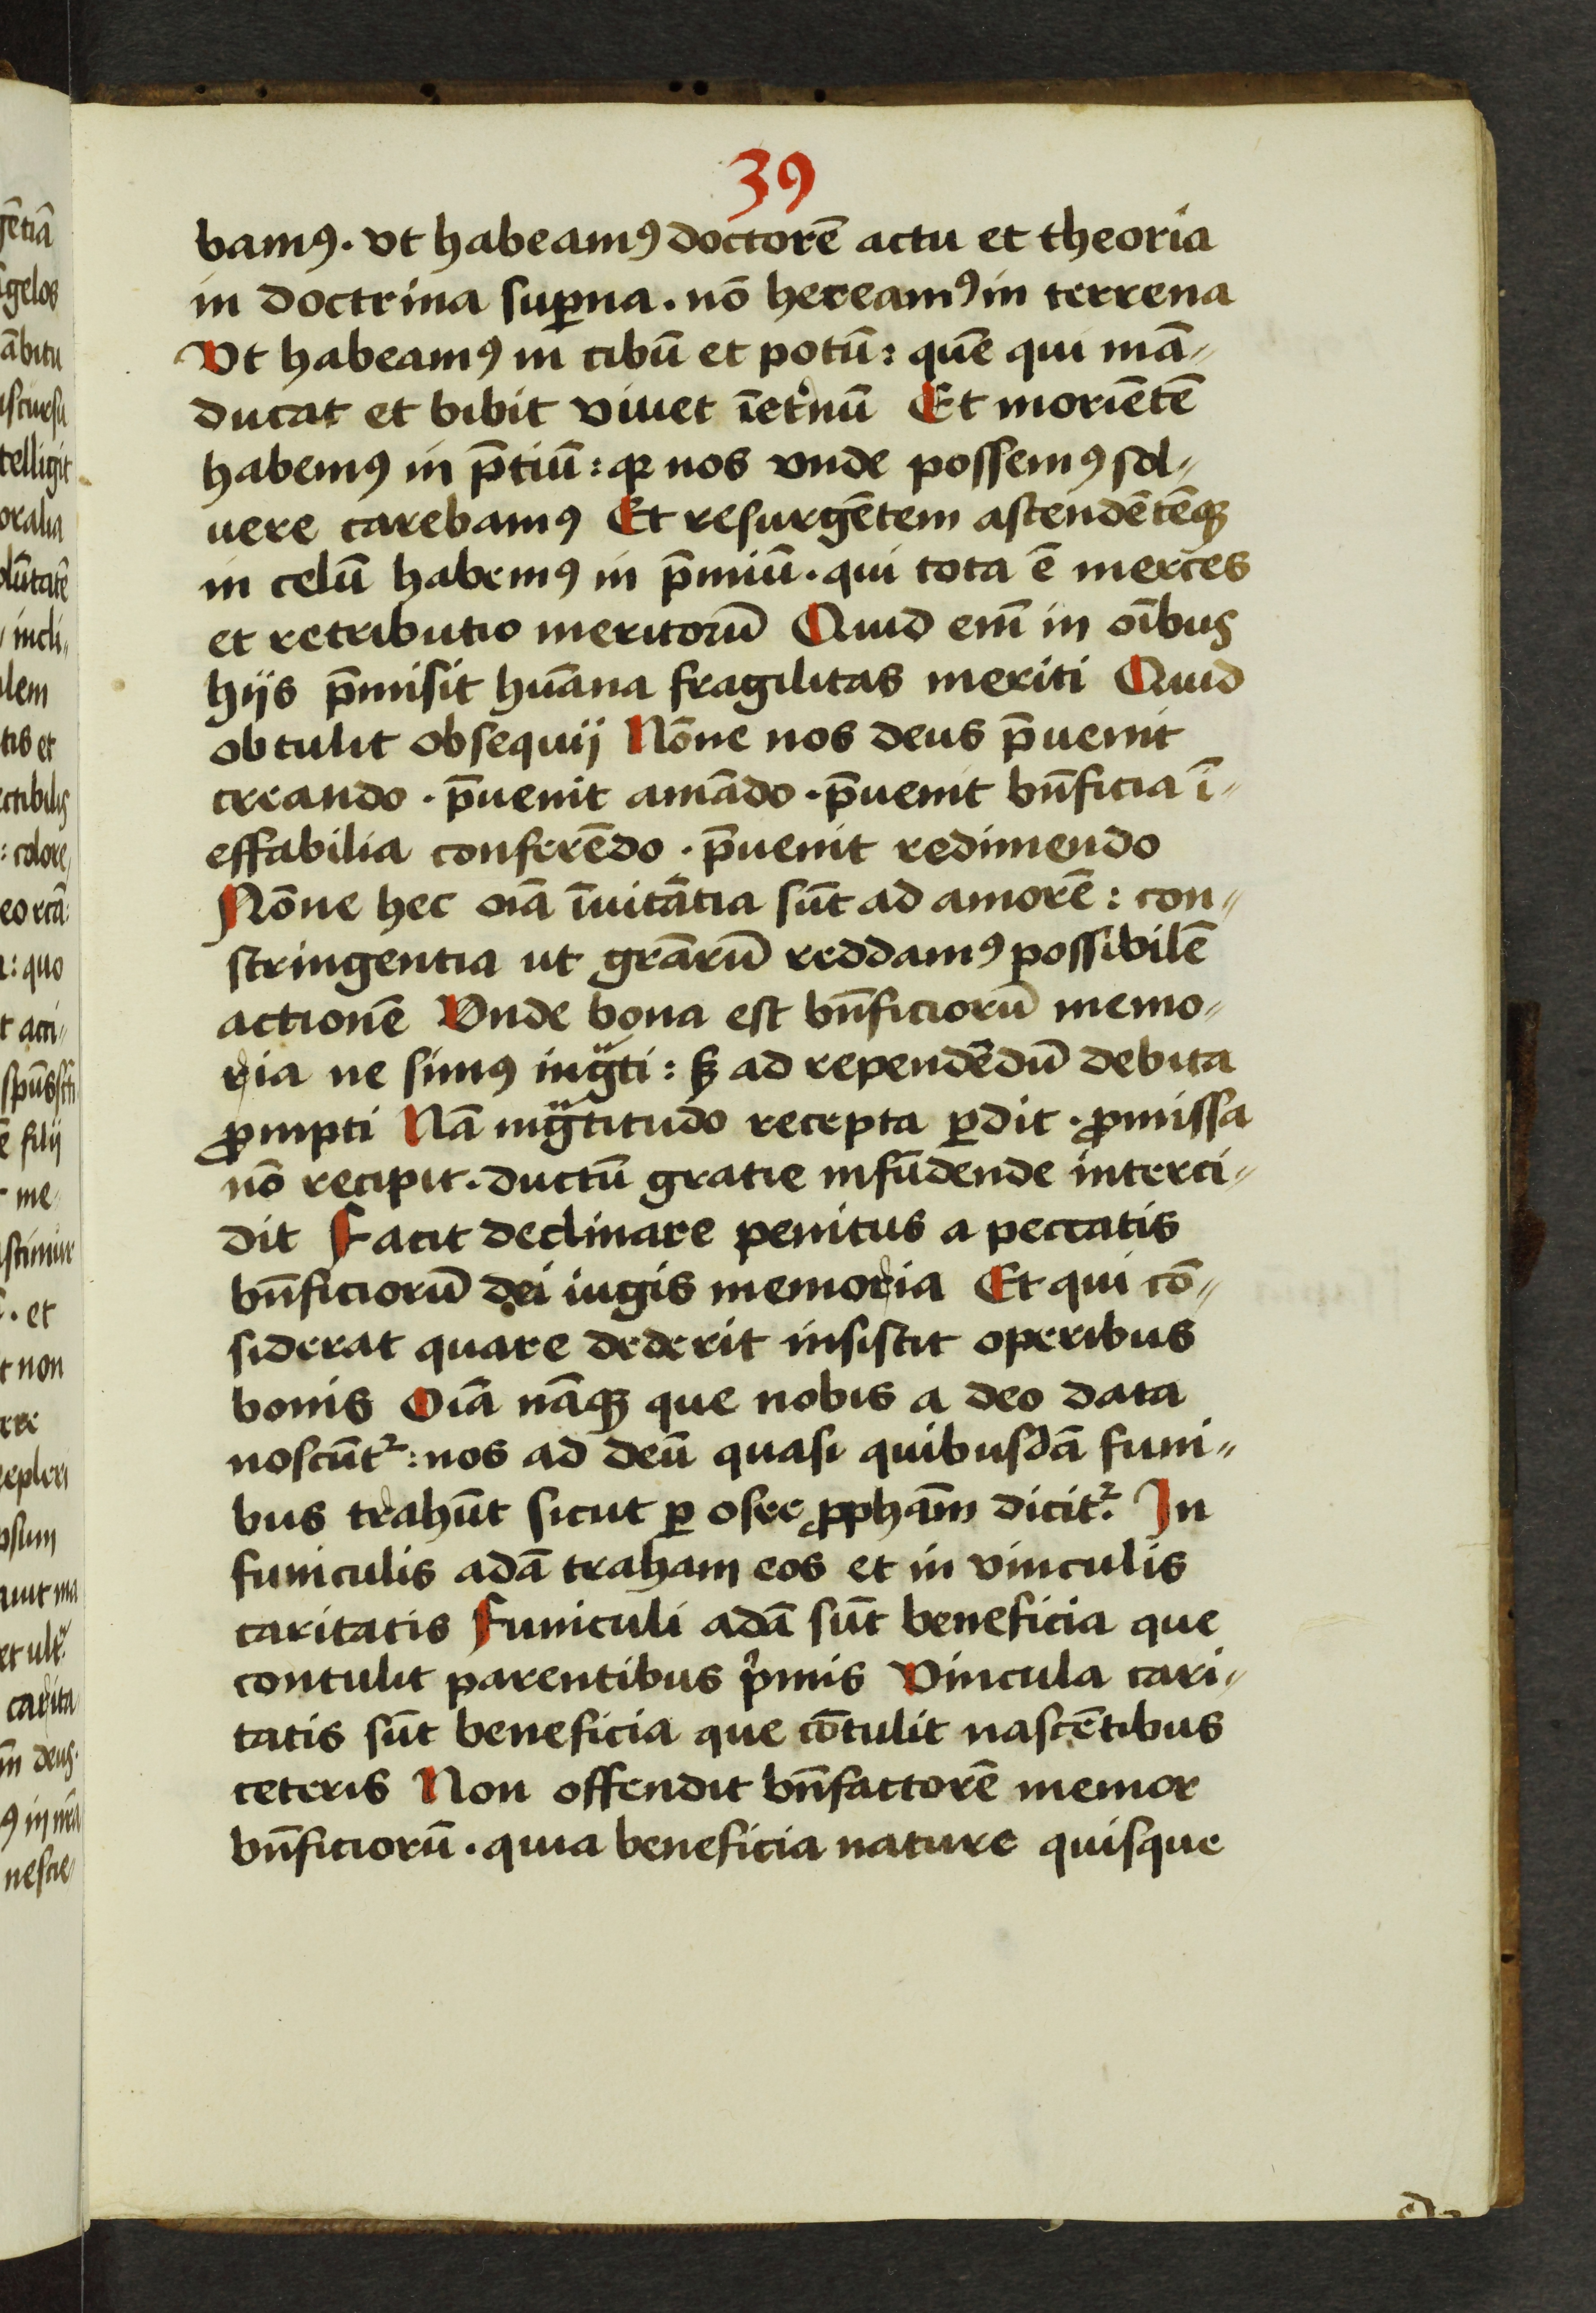 39
bamꝯ. vt habeamꝯ doctorē actu et theoria
in doctrina suꝑna. nō hereamꝯ in terrena
Vt habeamꝯ in cibū et potū: quē qui mā⸗
ducat et bibit viuet īet̾nū Et moriētē
habemꝯ in p̄tiū: qꝛ nos vnde possemꝯ sol⸗
uere carebamꝯ Et resurgētem ascendētēqꝫ
in celū habemꝯ in p̄miū. qui tota ē merces
et retributio meritorū Quid em̄ in oībus
hijs p̄misit hūana fragilitas meriti Quid
obtulit obsequij Nōne nos deus p̄uenit
creando. p̄uenit amādo. p̄uenit bn̄ficia ī⸗
effabilia conferēdo. p̄uenit redimendo
Nōne hec oīa īuitātia sūt ad amorē: con⸗
stringentia ut grāꝝ reddamꝯ possibilē
actionē Vnde bona est bn̄ficiorū memo⸗
ria ne simꝯ ingᷓti: sꝫ ad rependēdū debita
ꝓmpti Nā ingᷓtitudo recepta ꝑdit. ꝓmissa
nō recipit. ductū gratie infūdende interci⸗
dit Facit declinare penitus a peccatis
bn̄ficiorū dei iugis memoria Et qui cō⸗
siderat quare dederit insistit operibus
bonis Oīa nāqꝫ que nobis a deo data
noscūtᷣ: nos ad deū quasi quibusdā funi⸗
bus trahūt sicut ꝑ osee ꝓphām dicitᷣ. In
funiculis adā traham eos et in vinculis
caritatis Funiculi adā sūt beneficia que
contulit parentibus pͥmis Vincula cari⸗
tatis sūt beneficia que cōtulit nascētibus
ceteris Non offendit bn̄factorē memor
bn̄ficiorū. quia beneficia nature quisque